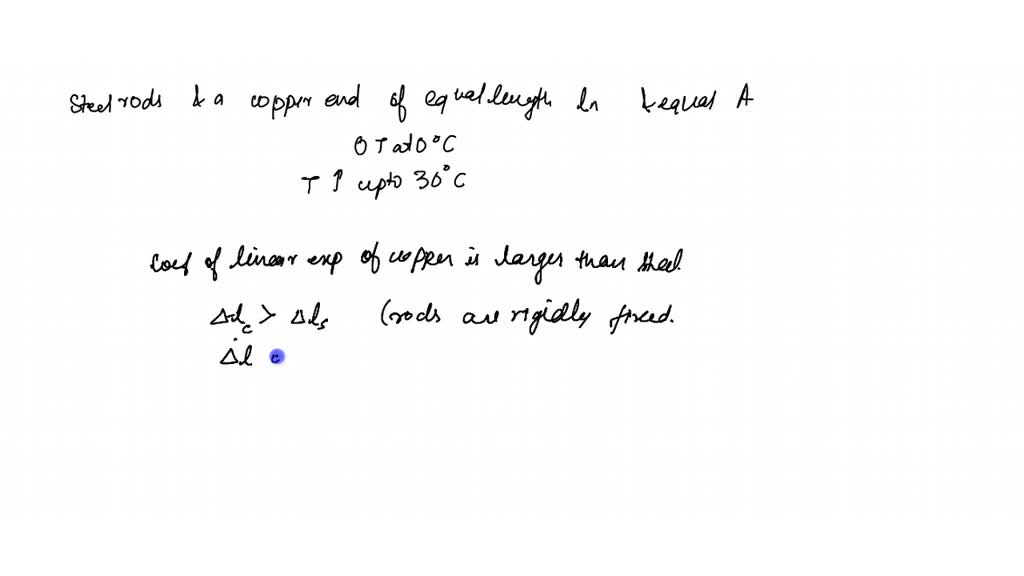 Steel rods & a copper end of equal length ln & equal A
0 T at 0°C
T ↑ upto 30°C
Coef of linear exp of copper is larger than steel.
Δl_c > Δl_s (rods are rigidly fixed.
Δl